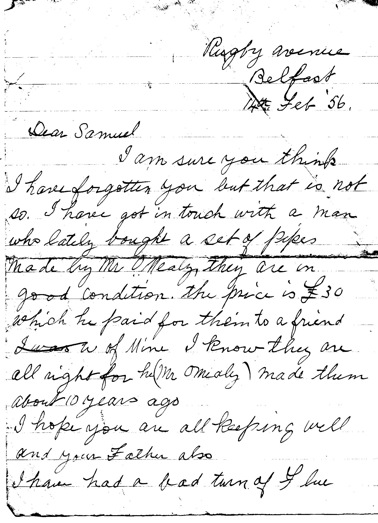 Rugby avenue
Belfast
14th Feb '56.
Dear Samuel
I am sure you think
I have forgotten you but that is not
so. I have got in touch with a man
who lately bought a set of pipes
made by Mr O'Mealy, they are in
good condition. the price is £30
which he paid for them to a friend
I was w of Mine I know they are
all right for he (Mr OMealy) made them
about 10 years ago
I hope you are all keeping well
and your Father also
I have had a bad turn of Flue